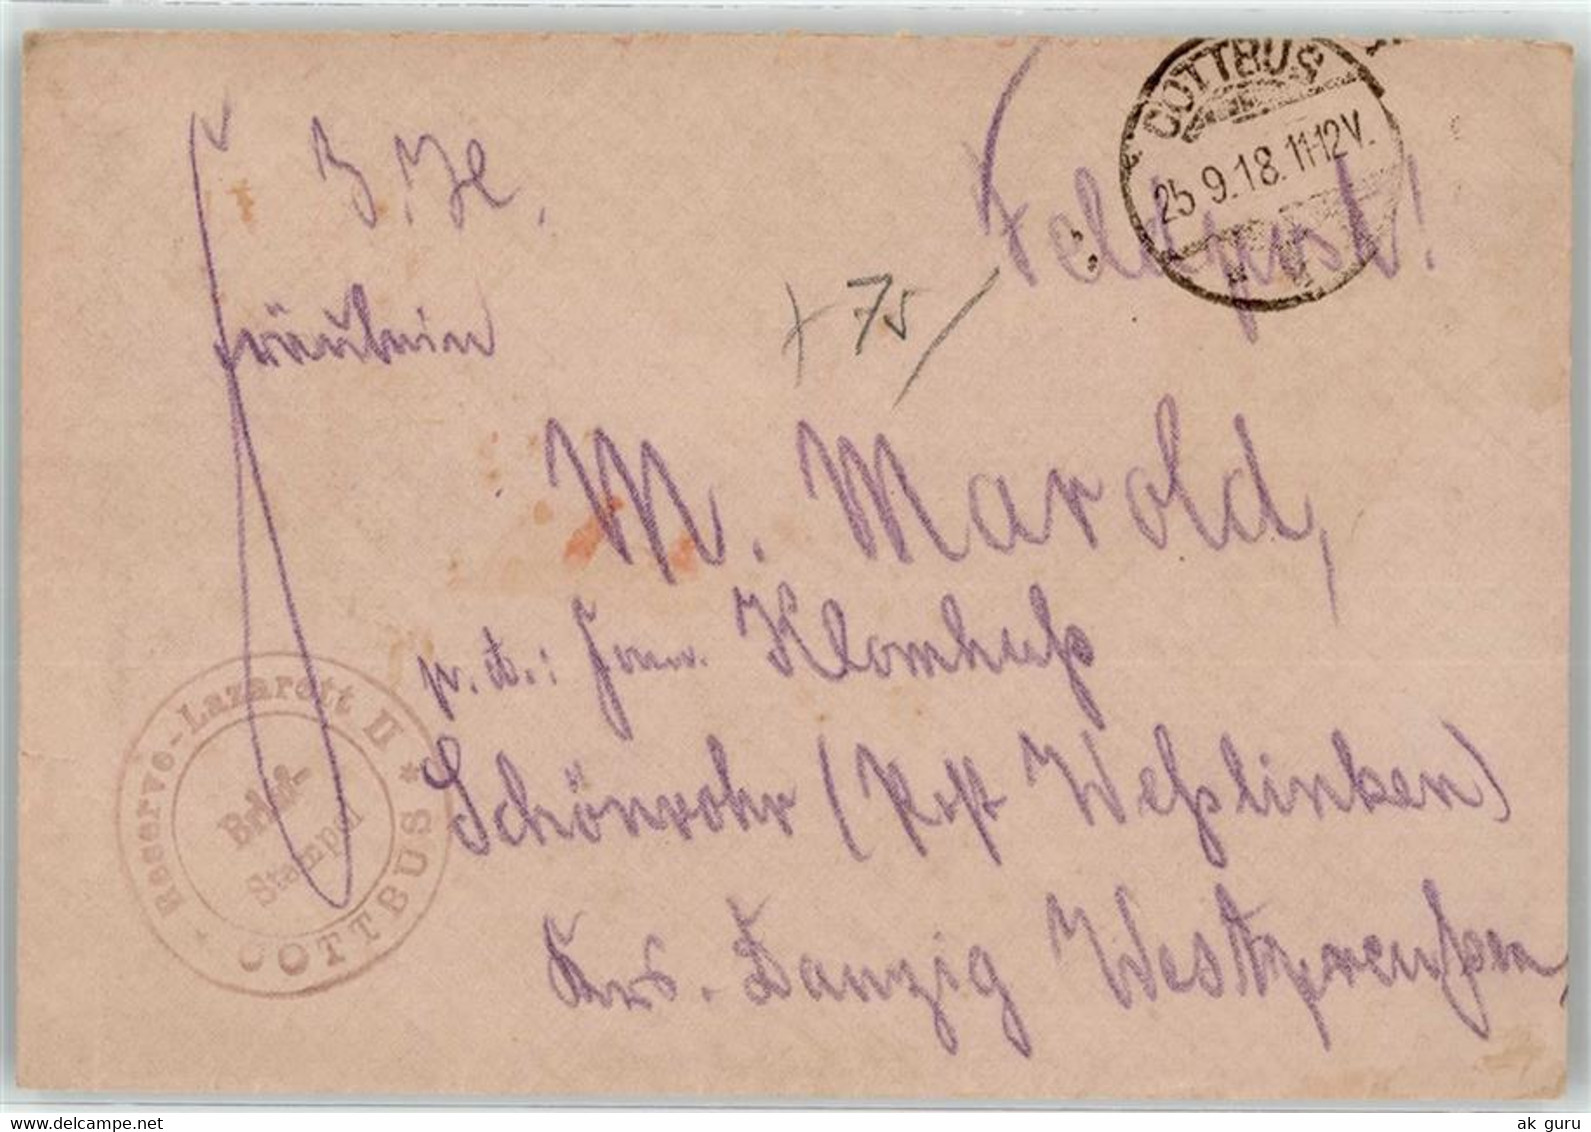 COTTBUS
25.9.18.11-12V.
Feldpost!
Fräulein
+ 75
M. Marold,
p. A.: Klomhuß
Schönrohr (Post Weßlinken)
Krs. Danzig Westpreußen
Reserve-Lazarett II
Brief-
Stempel
* COTTBUS *
www.delcampe.net
ak_guru